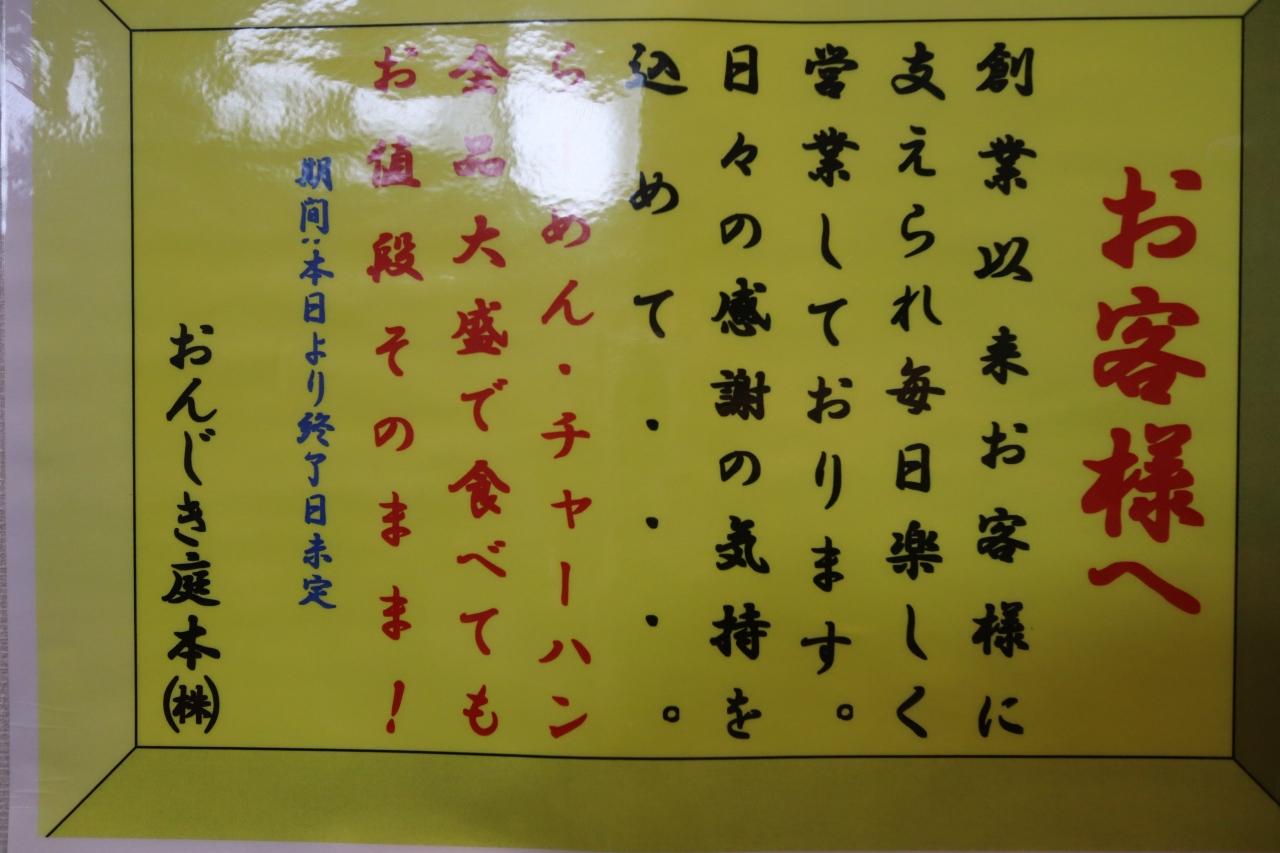 お客様へ
創業以来お客様に
支えられ毎日楽しく
営業しております。
日々の感謝の気持を
込めて・・・。
らーめん・チャーハン
全品大盛で食べても
お値段そのまま！
期間：本日より終了日未定
おんじき庭本㈱